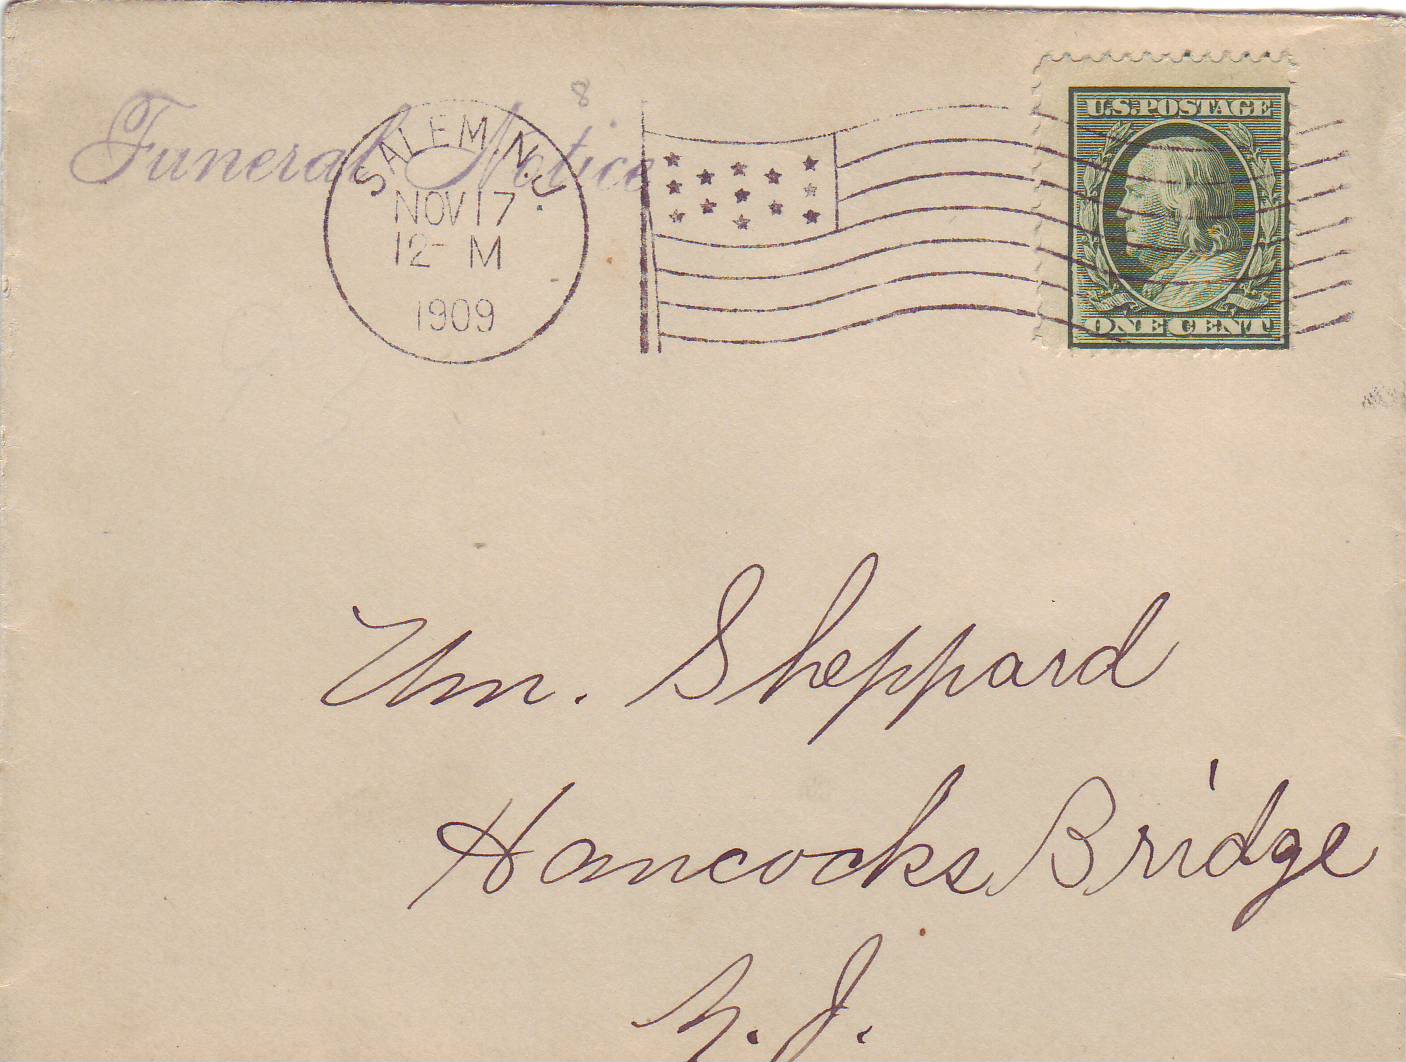 8
Funeral Notice
SALEM, N.J.
NOV 17
12- M
1909
U.S. POSTAGE
ONE CENT
Wm. Sheppard
Hancocks Bridge
N. J.